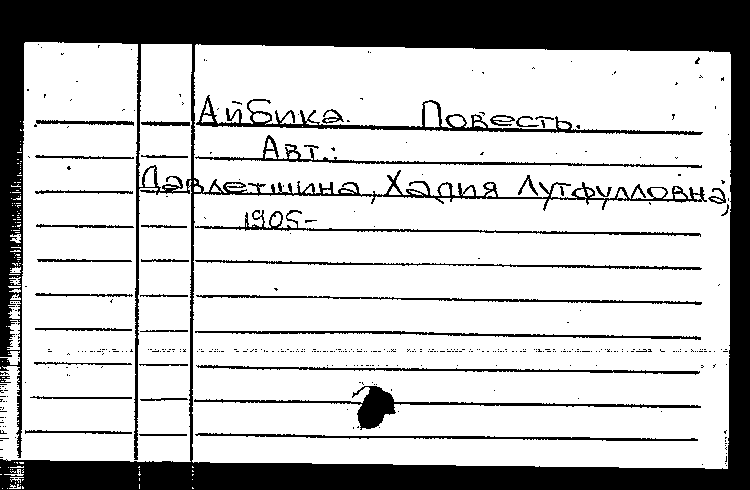 Айбика. Повесть.
Авт.:
Давлетшина, Хадия Лутфулловна,
1905-